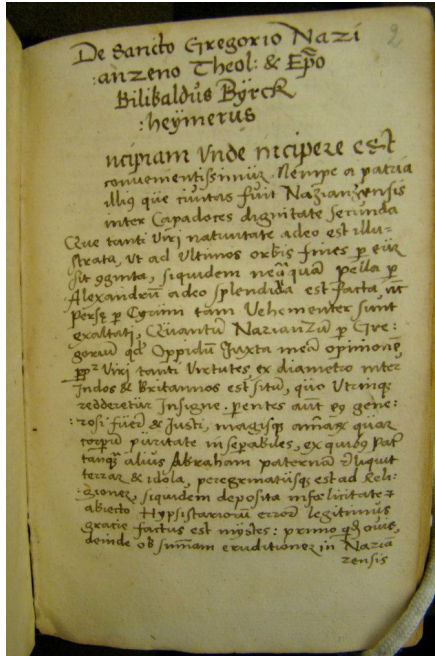 2
De Sancto Gregorio Nazi
:anzeno Theol: & Ep̃o
Bilibaldus Byrck
:heymerus
ncipiam Unde incipere est
convenientissimũ. Nempe a patria
illiq̃ que civitas fuit Nazianzensis
inter Capadoces dignitate secunda
Que tanti Viri nativitate adeo est illu-
strata, Ut ad Ultimos orbis fines p eũ
sit cognita, siquidem neq̃quã pella p
Alexandrũ adeo splendida est facta, ut
Perse p Cyrum tam Vehementer sunt
exaltati, Quantũ Nazianzũ p Gre:
goriũ qd Oppidũ Juxta meã opinionẽ,
Viri tanti Virtutes, ex diametro inter
Indos & Britannos est sitũ, quo Utrinq
redderetur Insigne. Parentes aũt eg gene:
:rosi fuerẽ & Justi, magisq animaꝝ quaꝝ
corpũ puritate inseparabiles, ex quibꝫ Pat̃
tanq̃ alius Abraham paternã reliquit
terrã & idola, peregrinatusq est ad Reli:
gionẽ, siquidem deposita infœlicitate &
abiecto Hypsistariorũ errorẽ legitimus
gratie factus est mystes: primo qd ovis,
deinde ob sum̃am eruditionẽ in Nazia
zensis